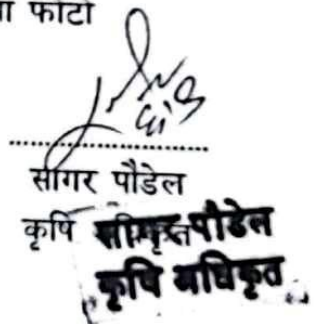 फोटो
सागर पौडेल
कृषि
सागर पौडेल
कृषि अधिकृत